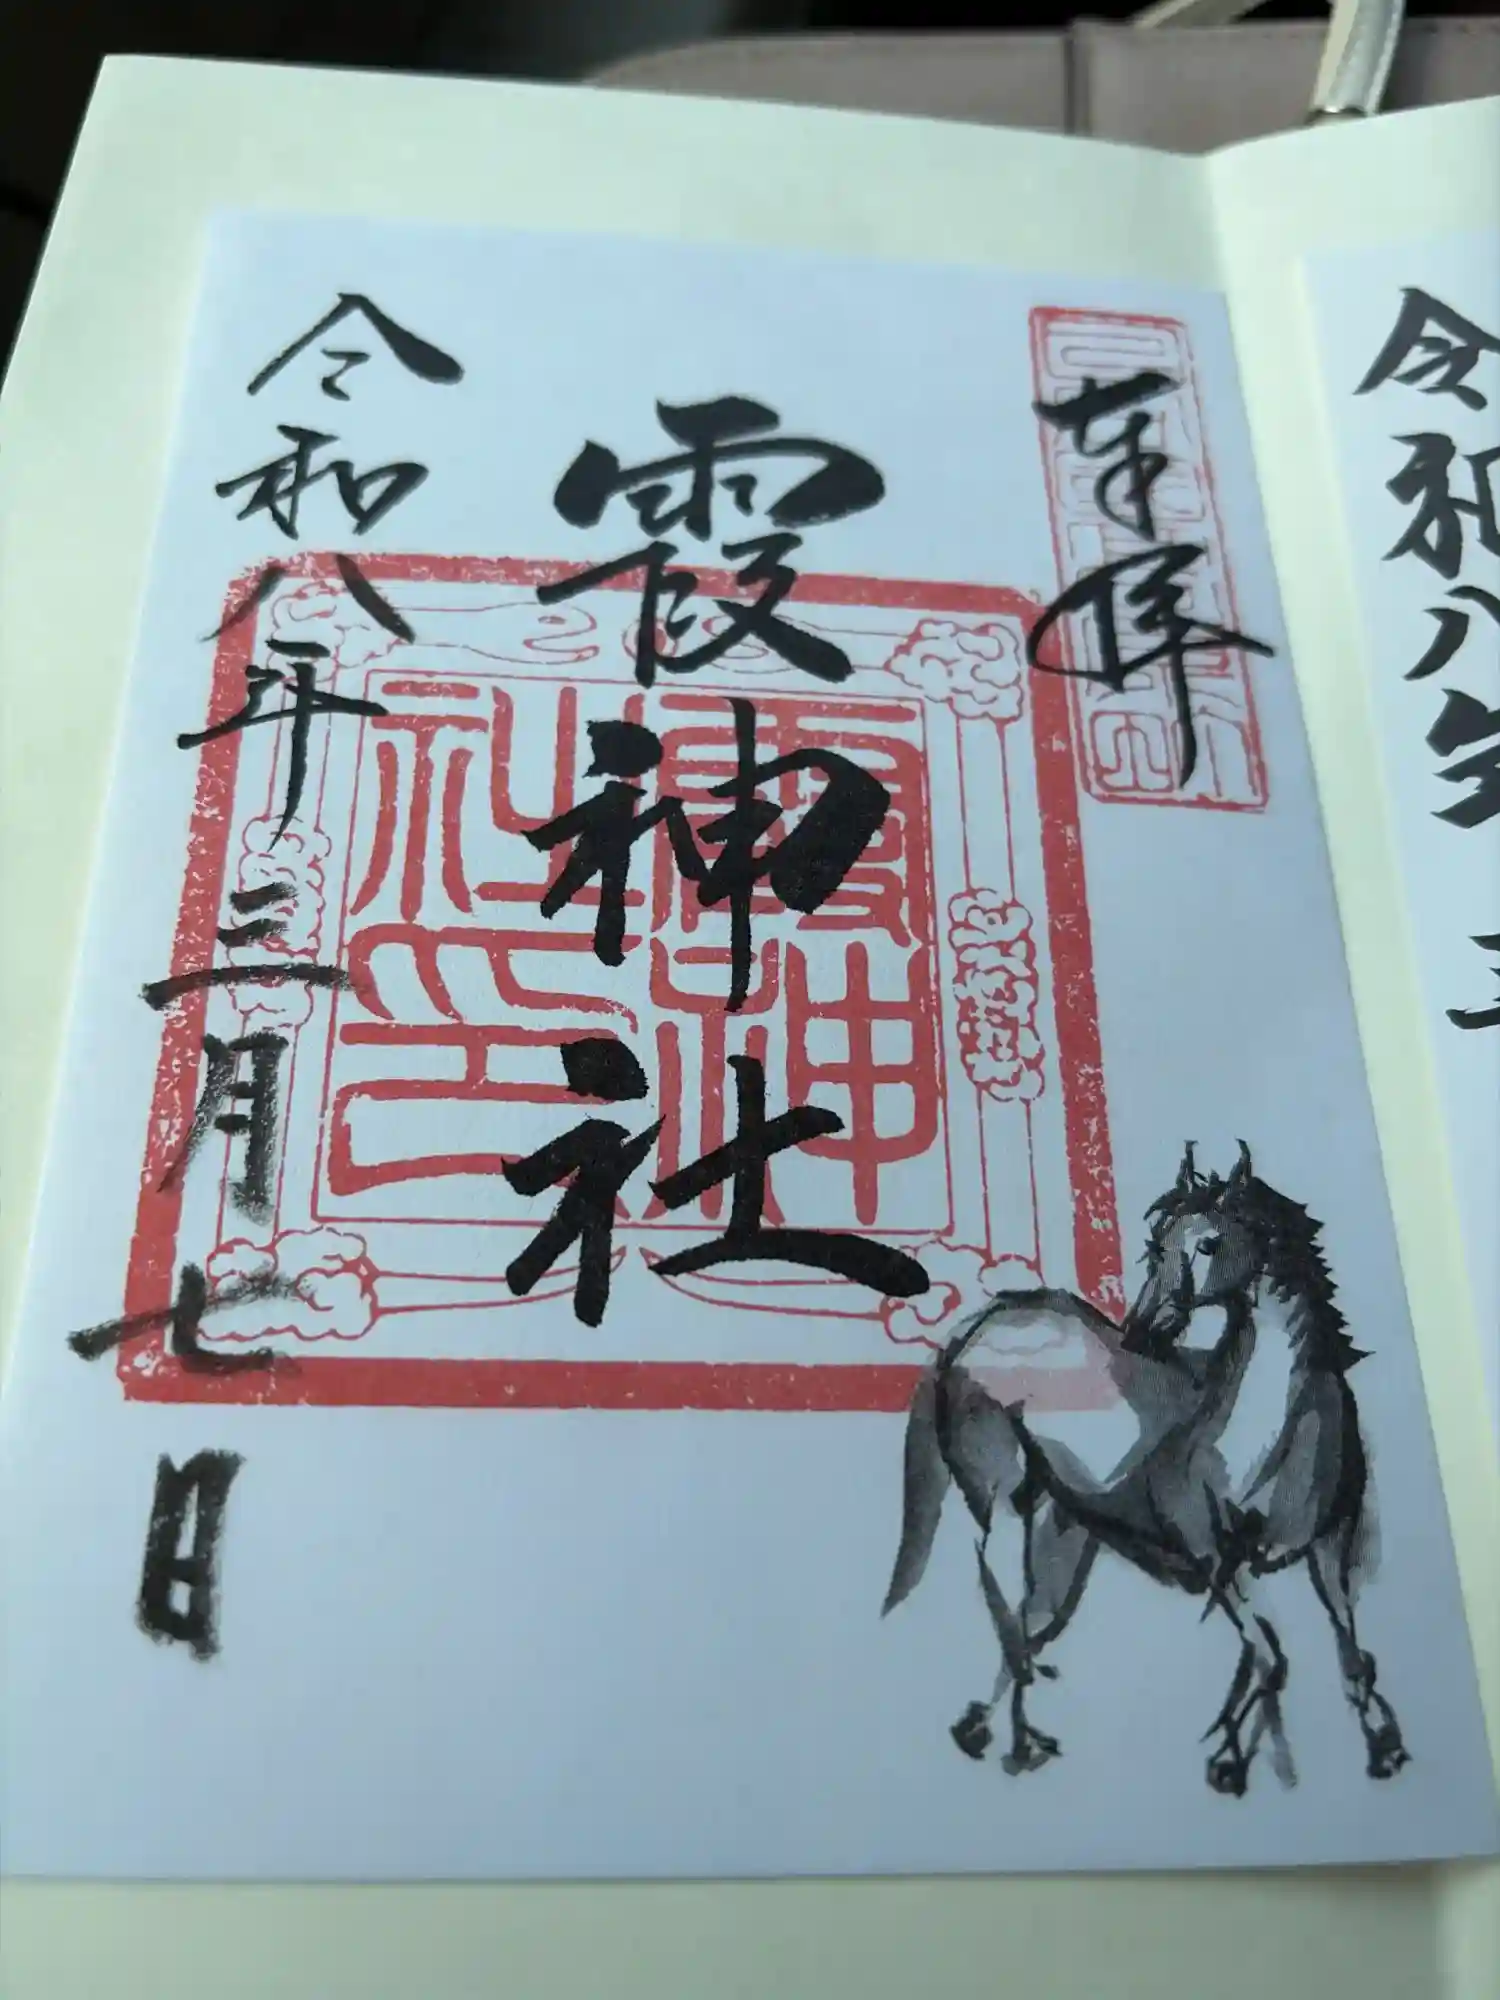 奉拝
霞神社
令和八年三月七日
霞神社印
令和八年 三